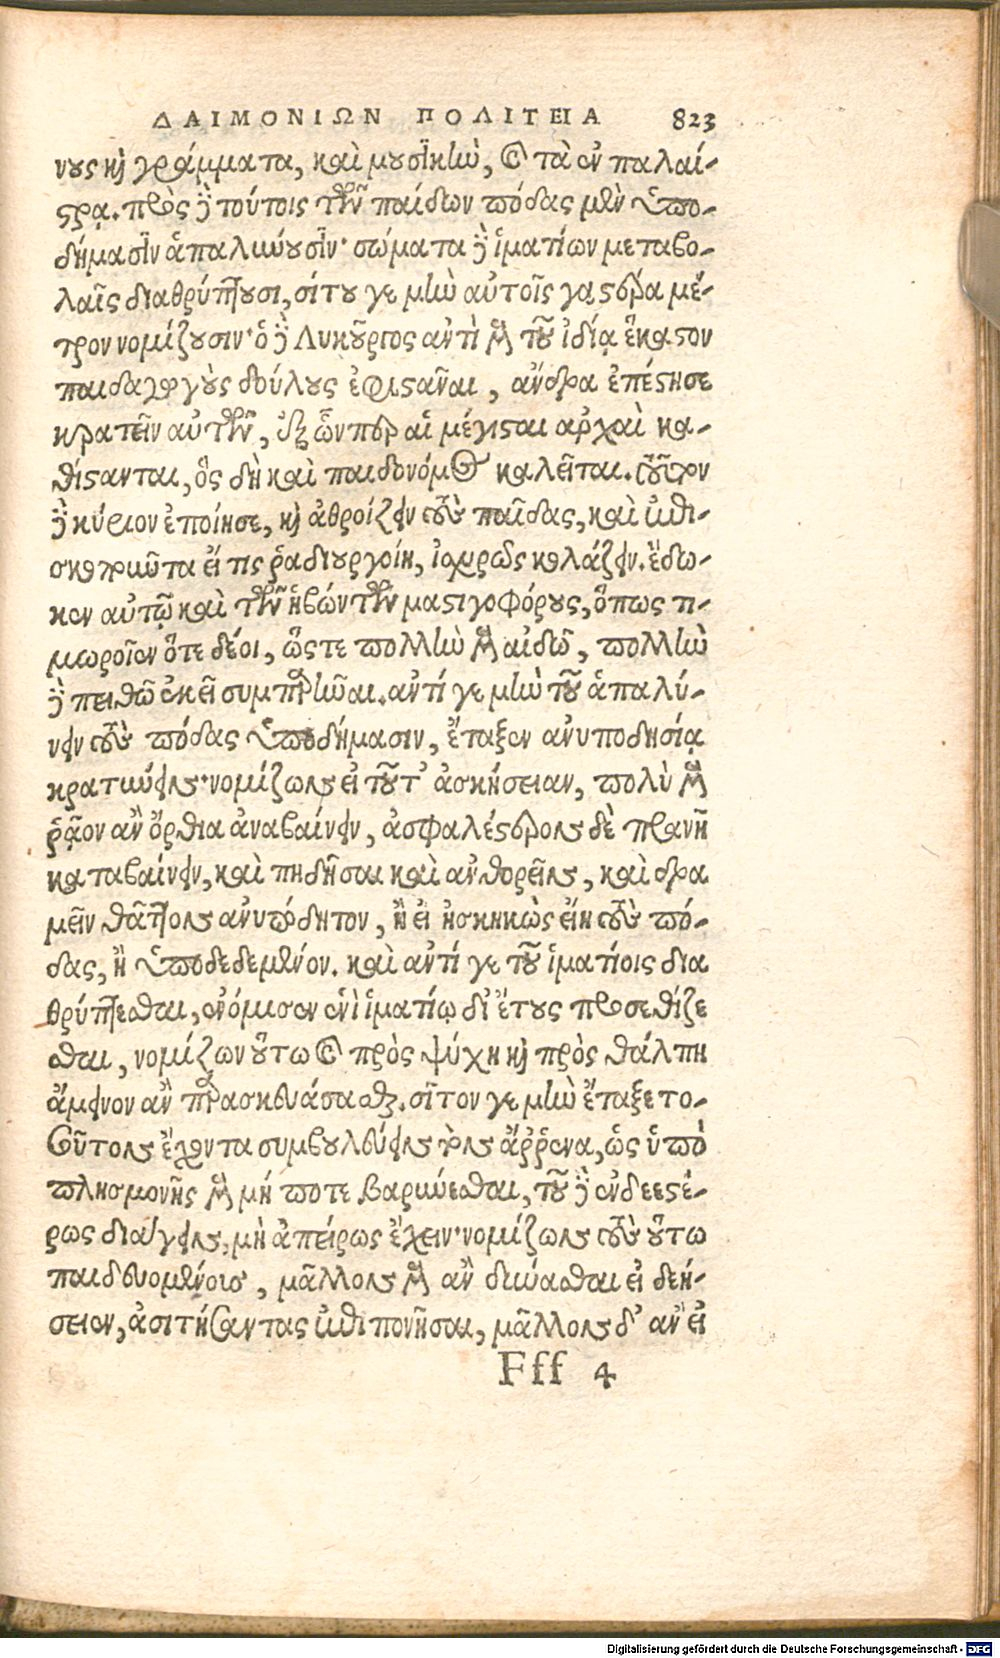 ΔΑΙΜΟΝΙΩΝ ΠΟΛΙΤΕΙΑ 823
νους καὶ γράμματα, καὶ μουσικὴν, καὶ τὰ ἐν παλαί-
στρᾳ. πρὸς δὲ τούτοις τῶν παίδων πόδας μὲν ὑπο-
δήμασιν ἁπαλύνουσιν· σώματα δὲ ἱματίων μεταβο-
λαῖς διαθρύπτουσι, σίτου γε μὴν αὐτοῖς γαστέρα μέ-
τρον νομίζουσιν· ὁ δὲ Λυκοῦργος ἀντὶ μὲν τοῦ ἰδίᾳ ἕκαστον
παιδαγωγοὺς δούλους ἐφιστάναι, ἄνδρα ἐπέστησε
κρατεῖν αὐτῶν, ἐξ ὧνπερ αἱ μέγισται ἀρχαὶ κα-
θίστανται, ὃς δὴ καὶ παιδονόμος καλεῖται. τοῦτον
δὲ κύριον ἐποίησε, καὶ ἀθροίζειν τοὺς παῖδας, καὶ ἐπι-
σκοποῦντα εἴ τις ῥαδιουργοίη, ἰσχυρῶς κολάζειν. ἔδω-
κεν αὐτῷ καὶ τῶν ἡβώντων μαστιγοφόρους, ὅπως τι-
μωροῖεν ὅτε δέοι, ὥστε πολλὴν μὲν αἰδῶ, πολλὴν
δὲ πειθῶ ἐκεῖ συμπαρεῖναι. ἀντί γε μὴν τοῦ ἁπαλύ-
νειν τοὺς πόδας ὑποδήμασιν, ἔταξεν ἀνυποδησίᾳ
κρατύνειν· νομίζων εἰ τοῦτ' ἀσκήσειαν, πολὺ μὲν
ῥᾷον ἂν ὄρθια ἀναβαίνειν, ἀσφαλέστερον δὲ πρανῆ
καταβαίνειν, καὶ πηδῆσαι καὶ ἀνθορεῖν, καὶ δρα
μεῖν θᾶττον ἀνυπόδητον, ἢ εἰ ἠσκηκὼς εἴη τοὺς πό-
δας, ἢ ὑποδεδεμένον. καὶ ἀντί γε τοῦ ἱματίοις δια
θρύπτεσθαι, ἐνόμισεν ἑνὶ ἱματίῳ δι' ἔτους προσεθίζε
σθαι, νομίζων οὕτω καὶ πρὸς ψύχη καὶ πρὸς θάλπη
ἄμεινον ἂν παρασκευάσασθαι. σῖτον γε μὴν ἔταξε το-
σοῦτον ἔχοντα συμβουλεύειν τὸν ἄῤῥενα, ὡς ὑπὸ
πλησμονῆς μὲν μή ποτε βαρύνεσθαι, τοῦ δὲ ἐνδεεστέ-
ρως διάγειν, μὴ ἀπείρως ἔχειν· νομίζων τοὺς οὕτω
παιδευομένους, μᾶλλον μὲν ἂν δύνασθαι εἰ δεή-
σειεν, ἀσιτήσαντας ἐπιπονῆσαι, μᾶλλον δ' ἂν εἰ
Fff 4
Digitalisierung gefördert durch die Deutsche Forschungsgemeinschaft - DFG